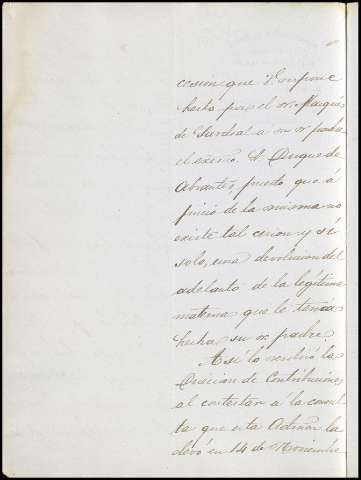 cesion que se supone
hecha por el sr. Marqués
de Sardoal a su sr padre
el excmo. Sr Duque de
Abrantes, puesto que á
juicio de la misma no
existe tal cesion y sí
solo, una devolucion del
adelanto de la legítima
materna que le tenia
hecha su sr. padre.
Así lo resolvió la
Direccion de Contribuciones
al contestar á la consul
ta que esta Admon. la
elevó en 14 de Noviembre